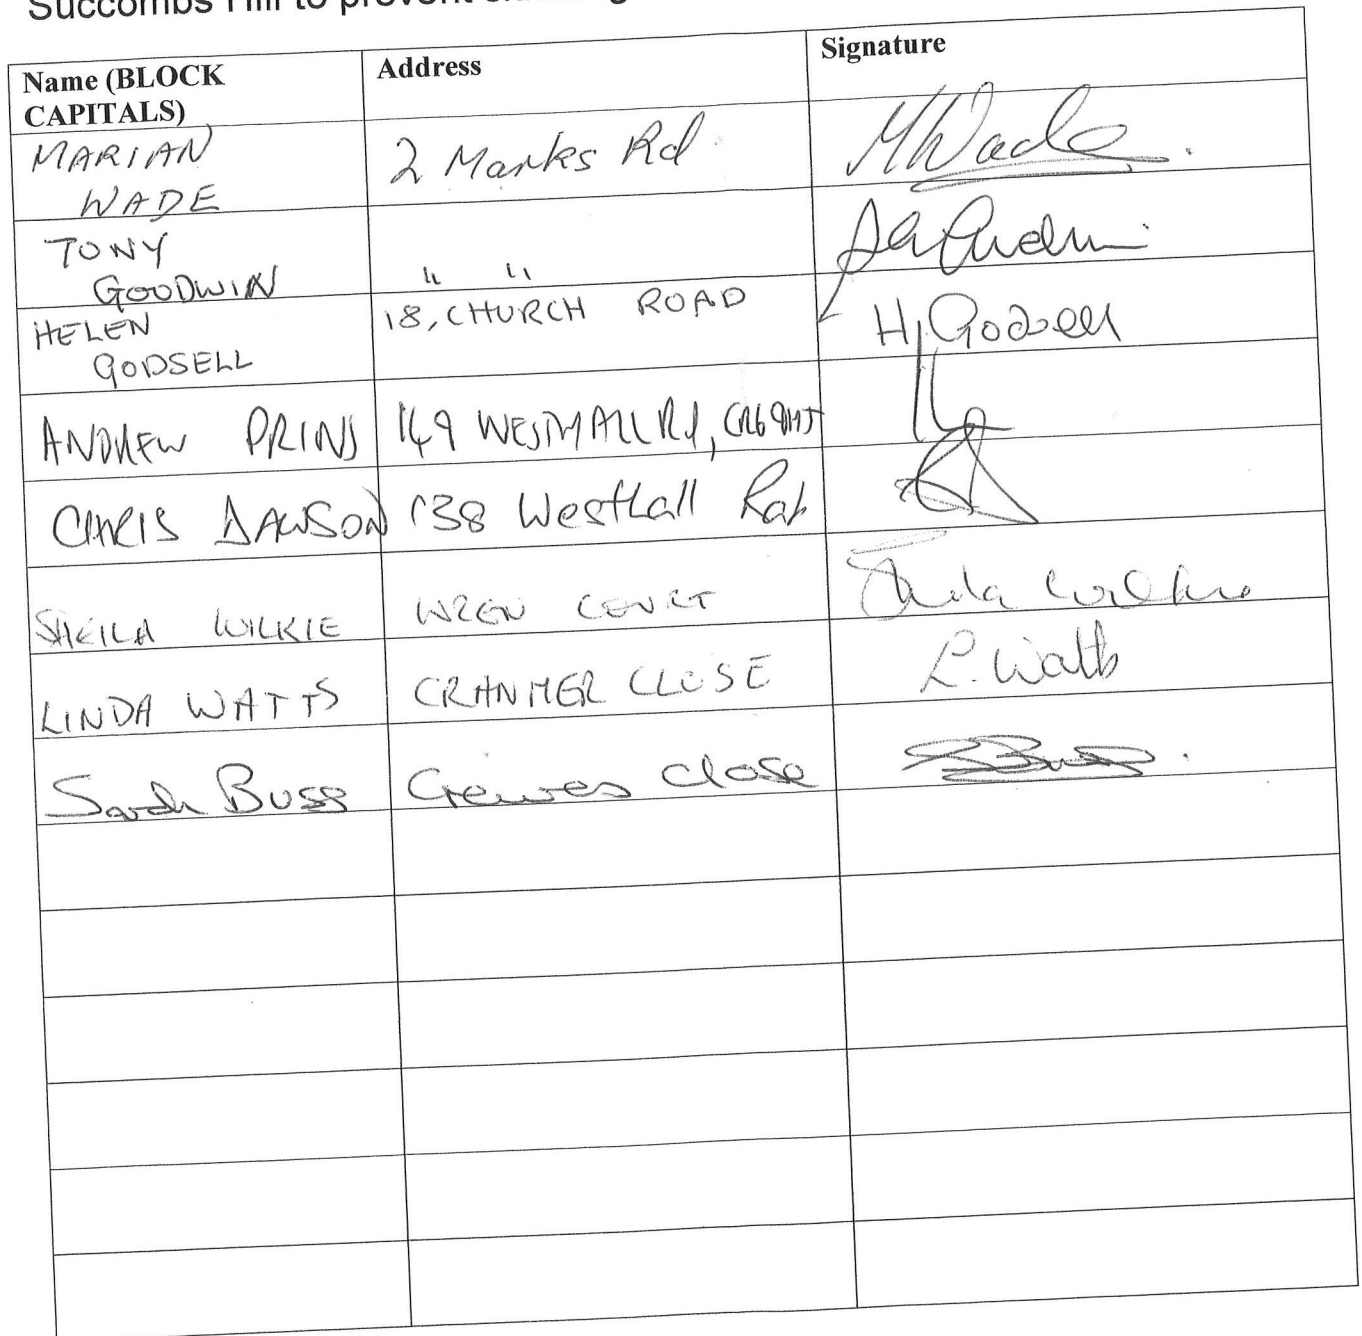 Succombs Hill to prevent
Name (BLOCK CAPITALS) Address Signature
MARIAN WADE 2 Marks Rd. MWade.
TONY GOODWIN " "
HELEN GODSELL 18, CHURCH ROAD H Godsell
ANDREW PRINS 149 WESTHALL Rd, CR6 9HJ
CHRIS DAWSON 138 Westhall
SHEILA WILKIE WREN COURT Sheila Wilkie
LINDA WATTS CRANMER CLOSE L. Watts
Sarah Buss Close